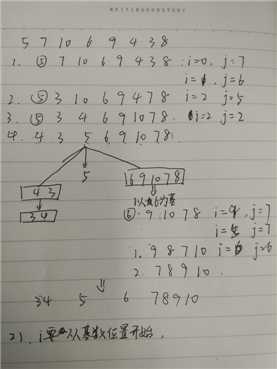 5 7 10 6 9 4 3 8
1. ⑤ 7 10 6 9 4 3 8 i=0, j=7
i=1, j=6
2. ⑤ 3 10 6 9 4 7 8 i=2 j=5
3. ⑤ 3 4 6 9 10 7 8 i=2 j=2
4. 4 3 5 6 9 10 7 8
4 3 5 6 9 10 7 8
3 4 以6为基
⑥ 9 10 7 8 j=7
j=7
1. 9 8 7 10 j=6
2. 7 8 9 10
3 4 5 6 7 8 9 10
2). i要从基数位置开始.